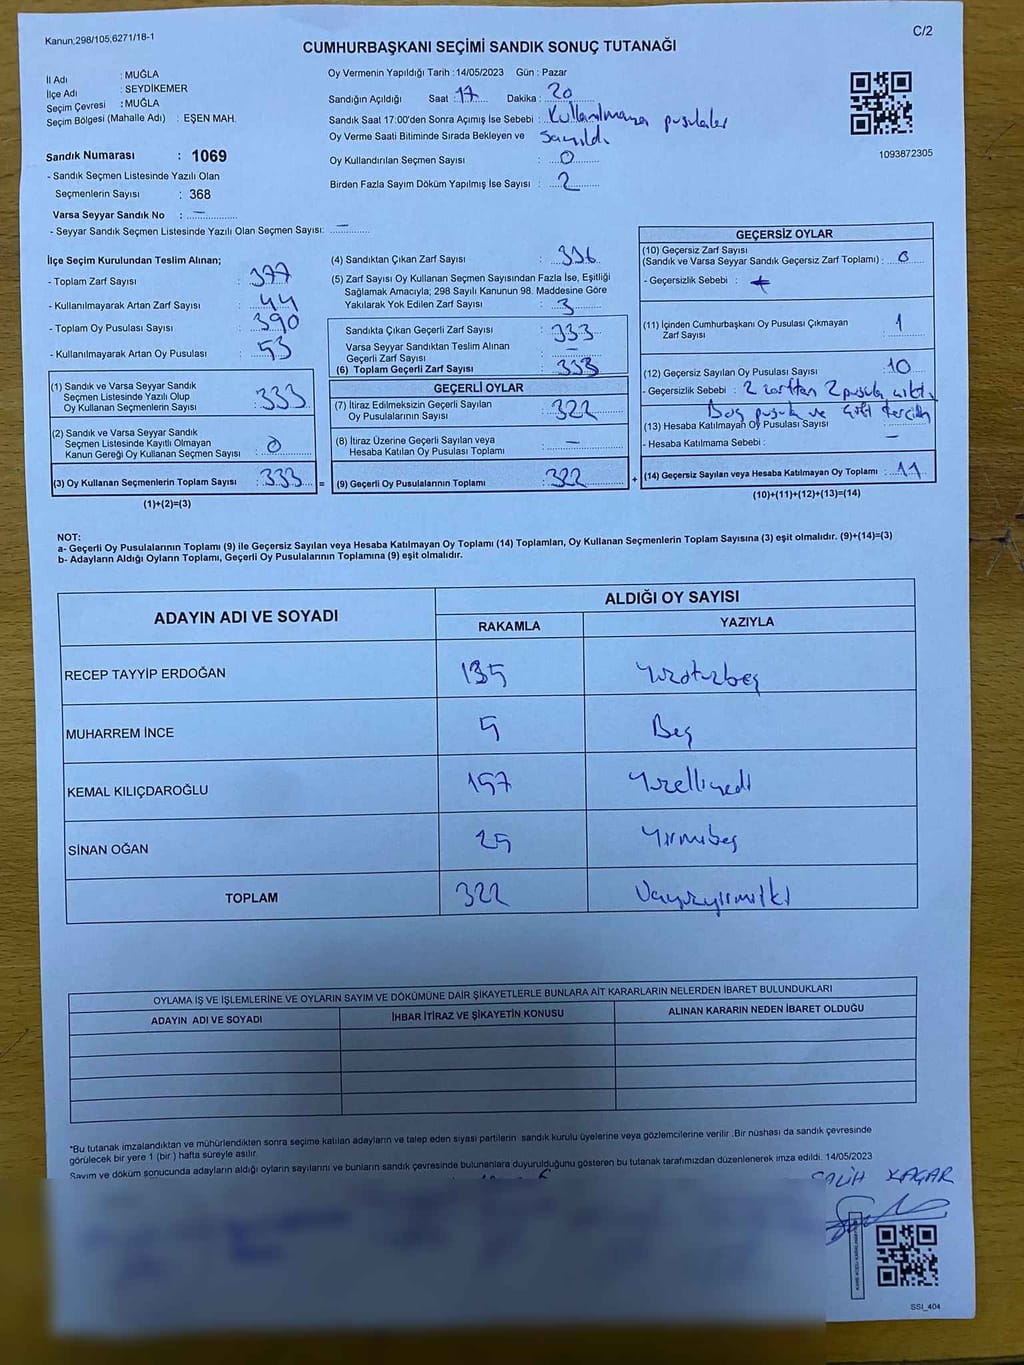 Kanun;298/105,6271/18-1
C/2
CUMHURBAŞKANI SEÇİMİ SANDIK SONUÇ TUTANAĞI
İl Adı : MUĞLA
İlçe Adı : SEYDİKEMER
Seçim Çevresi : MUĞLA
Seçim Bölgesi (Mahalle Adı) : EŞEN MAH.
Oy Vermenin Yapıldığı Tarih :14/05/2023 Gün : Pazar
Sandığın Açıldığı Saat : 17 Dakika : 20
Sandık Saat 17:00'den Sonra Açımış İse Sebebi : Kullanılmayan pusulalar
Oy Verme Saati Bitiminde Sırada Bekleyen ve sayıldı
Oy Kullandırılan Seçmen Sayısı : 0
Birden Fazla Sayım Döküm Yapılmış İse Sayısı : 2
1093872305
Sandık Numarası : 1069
- Sandık Seçmen Listesinde Yazılı Olan
Seçmenlerin Sayısı : 368
Varsa Seyyar Sandık No : -
- Seyyar Sandık Seçmen Listesinde Yazılı Olan Seçmen Sayısı: -
İlçe Seçim Kurulundan Teslim Alınan;
- Toplam Zarf Sayısı : 377
- Kullanılmayarak Artan Zarf Sayısı : 44
- Toplam Oy Pusulası Sayısı : 390
- Kullanılmayarak Artan Oy Pusulası : 53
(1) Sandık ve Varsa Seyyar Sandık
Seçmen Listesinde Yazılı Olup
Oy Kullanan Seçmenlerin Sayısı : 333
(2) Sandık ve Varsa Seyyar Sandık
Seçmen Listesinde Kayıtlı Olmayan
Kanun Gereği Oy Kullanan Seçmen Sayısı : 0
(3) Oy Kullanan Seçmenlerin Toplam Sayısı : 333
(1)+(2)=(3)
(4) Sandıktan Çıkan Zarf Sayısı : 336
(5) Zarf Sayısı Oy Kullanan Seçmen Sayısından Fazla İse, Eşitliği
Sağlamak Amacıyla; 298 Sayılı Kanunun 98. Maddesine Göre
Yakılarak Yok Edilen Zarf Sayısı : 3
Sandıkta Çıkan Geçerli Zarf Sayısı : 333
Varsa Seyyar Sandıktan Teslim Alınan
Geçerli Zarf Sayısı : -
(6) Toplam Geçerli Zarf Sayısı : 333
GEÇERLİ OYLAR
(7) İtiraz Edilmeksizin Geçerli Sayılan
Oy Pusulalarının Sayısı : 322
(8) İtiraz Üzerine Geçerli Sayılan veya
Hesaba Katılan Oy Pusulası Toplamı : -
= (9) Geçerli Oy Pusulalarının Toplamı : 322
GEÇERSİZ OYLAR
(10) Geçersiz Zarf Sayısı
(Sandık ve Varsa Seyyar Sandık Geçersiz Zarf Toplamı) : 0
- Geçersizlik Sebebi :
(11) İçinden Cumhurbaşkanı Oy Pusulası Çıkmayan
Zarf Sayısı : 1
(12) Geçersiz Sayılan Oy Pusulası Sayısı : 10
- Geçersizlik Sebebi : 2 zarftan 2 pusula çıktı.
Boş pusula ve çift tercih
(13) Hesaba Katılmayan Oy Pusulası Sayısı :
- Hesaba Katılmama Sebebi : -
+ (14) Geçersiz Sayılan veya Hesaba Katılmayan Oy Toplamı : 11
(10)+(11)+(12)+(13)=(14)
NOT:
a- Geçerli Oy Pusulalarının Toplamı (9) ile Geçersiz Sayılan veya Hesaba Katılmayan Oy Toplamı (14) Toplamları, Oy Kullanan Seçmenlerin Toplam Sayısına (3) eşit olmalıdır. (9)+(14)=(3)
b- Adayların Aldığı Oyların Toplamı, Geçerli Oy Pusulalarının Toplamına (9) eşit olmalıdır.
ADAYIN ADI VE SOYADI ALDIĞI OY SAYISI
RAKAMLA YAZIYLA
RECEP TAYYİP ERDOĞAN 135 Yüzotuzbeş
MUHARREM İNCE 5 Beş
KEMAL KILIÇDAROĞLU 157 Yüzelliyedi
SİNAN OĞAN 25 Yirmibeş
TOPLAM 322 Üçyüzyirmiiki
OYLAMA İŞ VE İŞLEMLERİNE VE OYLARIN SAYIM VE DÖKÜMÜNE DAİR ŞİKAYETLERLE BUNLARA AİT KARARLARIN NELERDEN İBARET BULUNDUKLARI
ADAYIN ADI VE SOYADI İHBAR İTİRAZ VE ŞİKAYETİN KONUSU ALINAN KARARIN NEDEN İBARET OLDUĞU
*Bu tutanak imzalandıktan ve mühürlendikten sonra seçime katılan adayların ve talep eden siyasi partilerin sandık kurulu üyelerine veya gözlemcilerine verilir .Bir nüshası da sandık çevresinde
görülecek bir yere 1 (bir ) hafta süreyle asılır.
Sayım ve döküm sonucunda adayların aldığı oyların sayılarını ve bunların sandık çevresinde bulunanlara duyurulduğunu gösteren bu tutanak tarafımızdan düzenlenerek imza edildi. 14/05/2023
SALİH KAÇAR
SSI_404